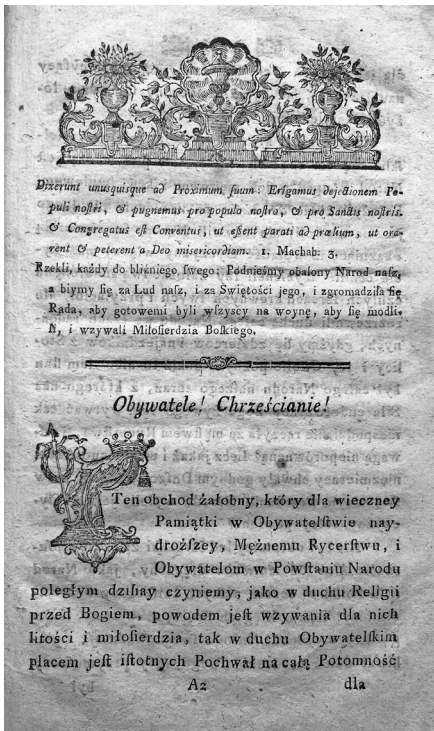 Dixerunt unusquisque ad Proximum ſuum: Erigamus dejectionem Po-
puli noſtri, & pugnemus pro populo noſtro, & pro Sanctis noſtris.
& Congregatus eſt Conventus, ut eſſent parati ad prœlium, ut ora-
rent & peterent a Deo misericordiam. 1. Machab: 3.
Rzekli, każdy do bliźniego ſwego: Podnieśmy obalony Narod naſz,
a biymy ſię za Lud naſz, i za Swiętości jego, i zgromadziła ſię
Rada, aby gotowemi byli wſzyscy na woynę, aby ſię modli-
li, i wzywali Miłoſierdzia Boſkiego.
Obywatele! Chrześcianie!
Ten obchod żałobny, który dla wieczney
Pamiątki w Obywatelſtwie nay-
droźſzey, Mężnemu Rycerſtwu, i
Obywatelom w Powſtaniu Narodu
poległym dziſiay czyniemy, jako w duchu Religii
przed Bogiem, powodem jeſt wzywania dla nich
litości i miłoſierdzia, tak w duchu Obywatelſkim
placem jeſt iſtotnych Pochwał na całą Potomność
A2 dla